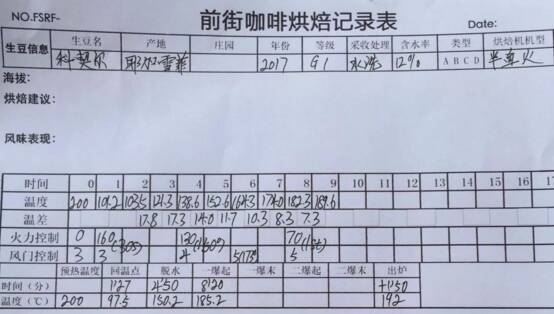 NO.FSRF- 前街咖啡烘焙记录表 Date:
生豆信息 生豆名 产地 庄园 年份 等级 采收处理 含水率 类型 烘焙机机型
科契尔 耶加雪菲 2017 G1 水洗 12% A B C D 半直火
海拔:
烘焙建议:
风味表现:
时间 0 1 2 3 4 5 6 7 8 9 10 11 12 13 14 15 16 17
温度 200 101.2 103.5 121.3 138.6 152.6 164.3 174.0 182.3 189.6
温差 17.8 17.3 14.0 11.7 10.3 8.3 7.3
火力控制 0 160 (30s) 130 70
风门控制 3 3 4 5 5
预热温度 回温点 脱水 一爆起 一爆末 二爆起 二爆末 出炉
时间(分) 1'27 4'50 8'20 +1'50
温度(℃) 200 97.5 150.2 185.2 192